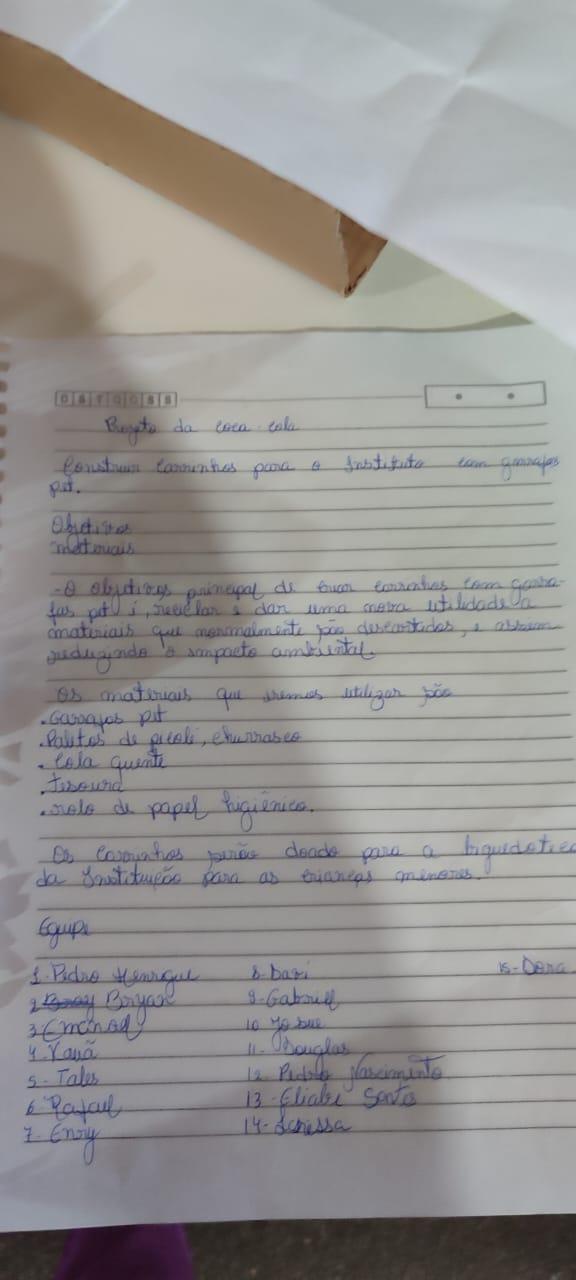 Projeto da coca-cola
Construir carrinhos para o Instituto com garrafas
pit.
Objetivos
materiais
-O objetivos principal de criar carrinhos com garra-
fas pit é, reciclar e dar uma nova utilidade a
materiais que normalmente são descartados, e assim
reduzindo o impacto ambiental.
Os materiais que iremos utilizar são
.Garrafas pit
.Palitos de picolé, churrasco
. Cola quente
.tesoura
.rolo de papel higiênico.
Os carrinhos serão doado para a briquedotec
da Instituição para as crianças menores.
Equipe
1. Pedro Henrique
2 Bryan
4. Kauã
5- Tales
6. Rafael
7- Enry
8- Davi
9- Gabriel
10 Josue
11- Douglas
12. Pedro Nascimento
13- Eliabe Santos
14-
15- Dora